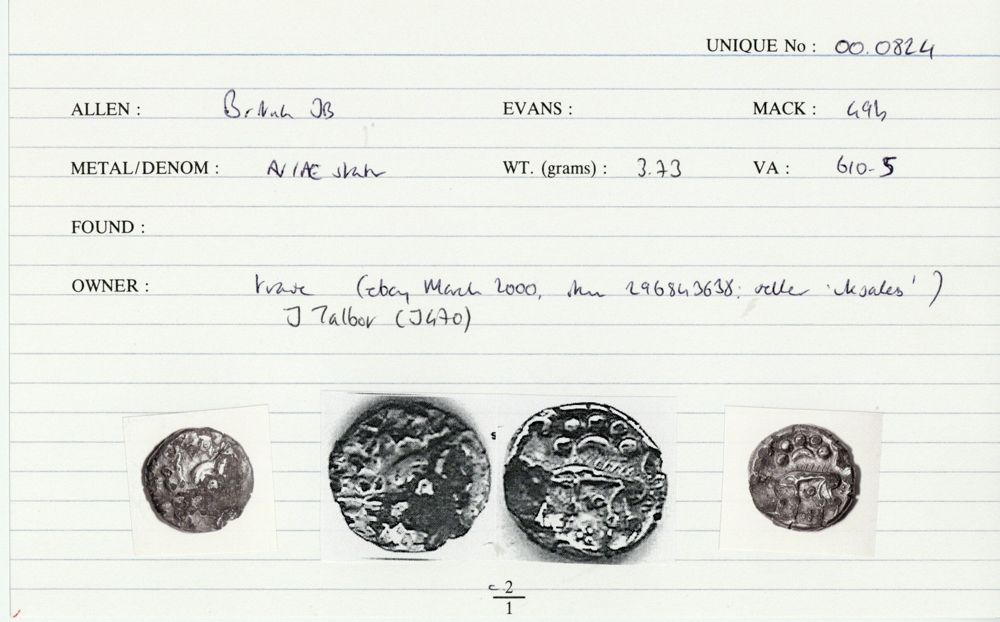 UNIQUE No : 00.0824
ALLEN : British JB EVANS : MACK : 49b
METAL/DENOM : AV/AE stater WT. (grams) : 3.73 VA : 610-5
FOUND :
OWNER : trade (ebay March 2000, item 296843638: seller 'uksales')
J Talbot (J470)
s
c 2
1